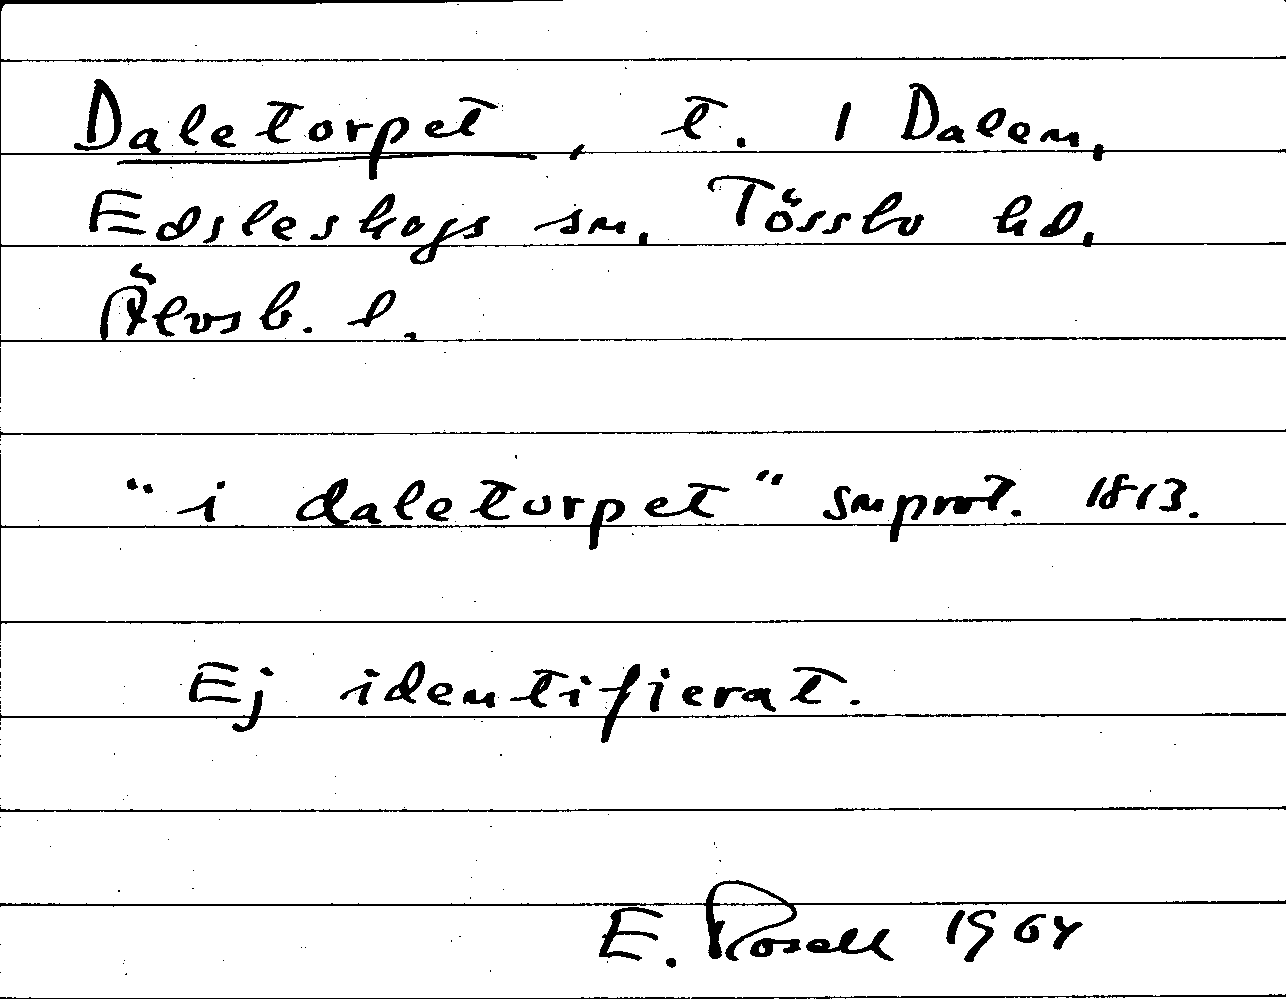 Daletorpet, t. 1 Dalen,
Edsleskogs sn. Tössbo hd.
Älvsb. l.
"i daletorpet" snprot. 1813.
Ej identifierat.
E. Rosell 1964